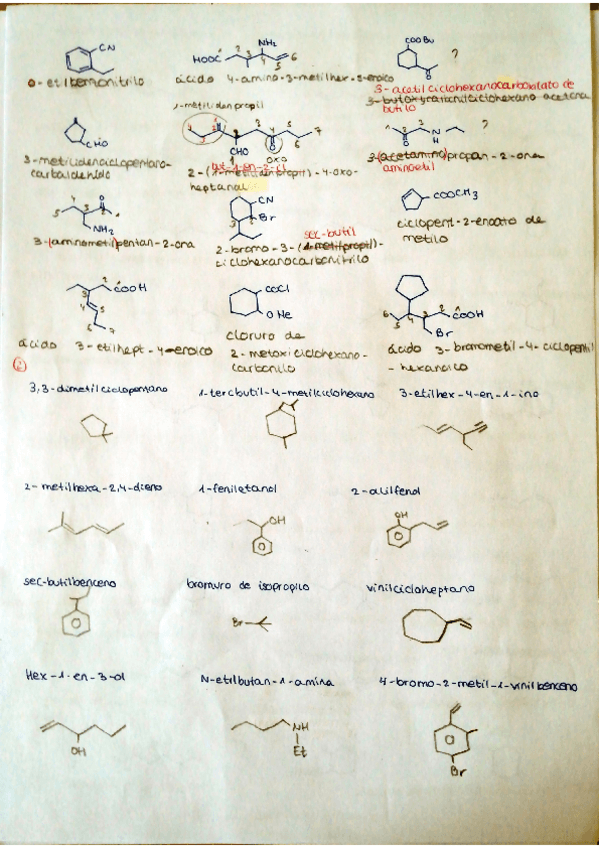 CN
NH₂
HOOC
1 2 3 4 5 6
COOBu
?
O
o-etilbenzonitrilo
ácido 4-amino-3-metilhex-5-enoico
3-acetilciclohexanocarboxilato de butilo
3-butoxicarbonilciclohexano acetona
1-metilidenpropil
CHO
3-metilidenciclopentano-
carbaldehído
4 3 2 1
1 2 3 4 5 6 7
CHO
O
oxo
but-1-en-2-il
2-(1-metilidenpropil)-4-oxo-
heptanal
O
1 2 3
N
H
?
3-(acetamino)propan-2-ona
aminoetil
O
1 2 3 4 5
NH₂
3-(aminometil)pentan-2-ona
CN
Br
1 2 3
sec-butil
2-bromo-3-(1-metilpropil)-
ciclohexanocarbonitrilo
COOCH₃
ciclopent-2-enoato de
metilo
COOH
1 2 3 4 5 6 7
ácido 3-etilhept-4-enoico
COCl
OMe
cloruro de
2-metoxiciclohexano-
carbonilo
COOH
Br
1 2 3 4 5 6
ácido 3-bromometil-4-ciclopentil
-hexanoico
2
3,3-dimetilciclopentano
1-tercbutil-4-metilciclohexano
3-etilhex-4-en-1-ino
2-metilhexa-2,4-dieno
1-feniletanol
2-alilfenol
OH
OH
sec-butilbenceno
bromuro de isopropilo
vinilcicloheptano
Br
Hex-1-en-3-ol
N-etilbutan-1-amina
4-bromo-2-metil-1-vinilbenceno
OH
NH
Et
Br